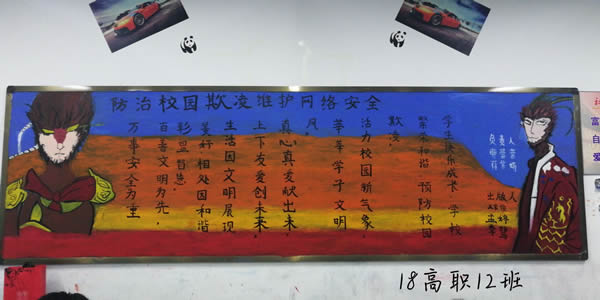 防治校园欺凌维护网络安全
学生快乐成长 学校
繁荣和谐 预防校园
欺凌,
活力校园新气象,
莘莘学子文明
风,
真心真爱献出来,
上下友爱创未来,
生活因文明展现
美好 相处因和谐
百善文明为先,
万事安全为重
18高职12班
富
自
爱